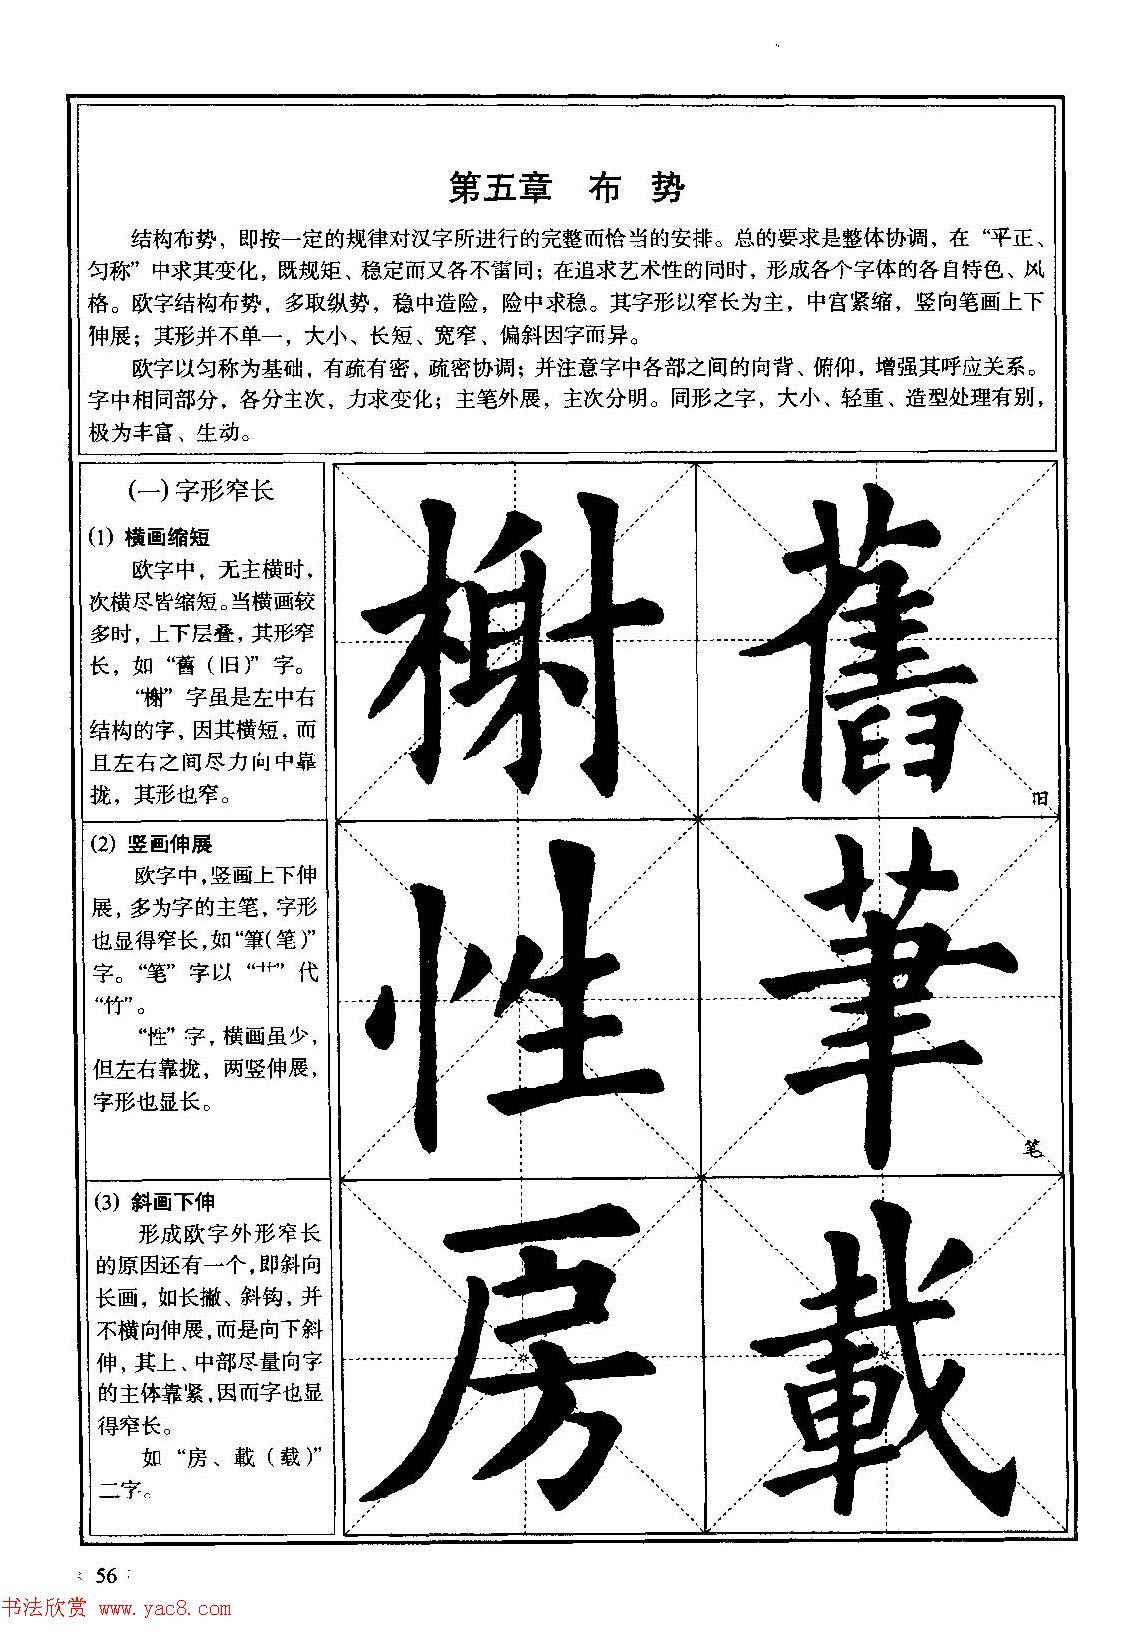 第五章 布 势
结构布势，即按一定的规律对汉字所进行的完整而恰当的安排。总的要求是整体协调，在“平正、
匀称”中求其变化，既规矩、稳定而又各不雷同；在追求艺术性的同时，形成各个字体的各自特色、风
格。欧字结构布势，多取纵势，稳中造险，险中求稳。其字形以窄长为主，中宫紧缩，竖向笔画上下
伸展；其形并不单一，大小、长短、宽窄、偏斜因字而异。
欧字以匀称为基础，有疏有密，疏密协调；并注意字中各部之间的向背、俯仰，增强其呼应关系。
字中相同部分，各分主次，力求变化；主笔外展，主次分明。同形之字，大小、轻重、造型处理有别，
极为丰富、生动。
(一)字形窄长
(1) 横画缩短
欧字中，无主横时，
次横尽皆缩短。当横画较
多时，上下层叠，其形窄
长，如“舊（旧）”字。
“榭”字虽是左中右
结构的字，因其横短，而
且左右之间尽力向中靠
拢，其形也窄。
榭 舊
旧
(2) 竖画伸展
欧字中，竖画上下伸
展，多为字的主笔，字形
也显得窄长，如“筆（笔）”
字。“笔”字以“艹”代
“竹”。
“性”字，横画虽少，
但左右靠拢，两竖伸展，
字形也显长。
性 筆
笔
(3) 斜画下伸
形成欧字外形窄长
的原因还有一个，即斜向
长画，如长撇、斜钩，并
不横向伸展，而是向下斜
伸，其上、中部尽量向字
的主体靠紧，因而字也显
得窄长。
如“房、載（载）”
二字。
房 載
56
书法欣赏 www.yac8.com